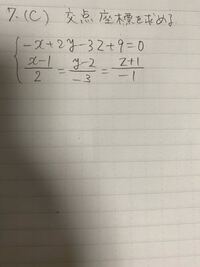 7.(C) 交点座標を求める
-x+2y-3z+9=0
x-1/2 = y-2/-3 = z+1/-1